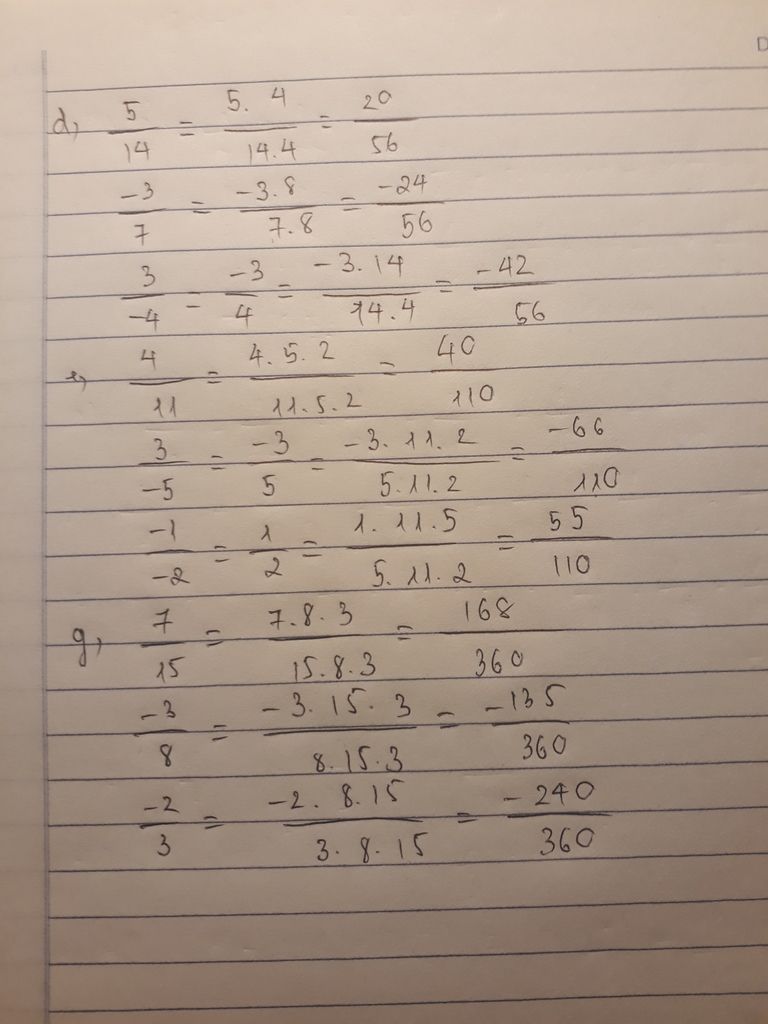 d, 5/14 = 5.4/14.4 = 20/56
-3/7 = -3.8/7.8 = -24/56
3/-4 = -3/4 = -3.14/14.4 = -42/56
e, 4/11 = 4.5.2/11.5.2 = 40/110
3/-5 = -3/5 = -3.11.2/5.11.2 = -66/110
-1/-2 = 1/2 = 1.11.5/5.11.2 = 55/110
g, 7/15 = 7.8.3/15.8.3 = 168/360
-3/8 = -3.15.3/8.15.3 = -135/360
-2/3 = -2.8.15/3.8.15 = -240/360